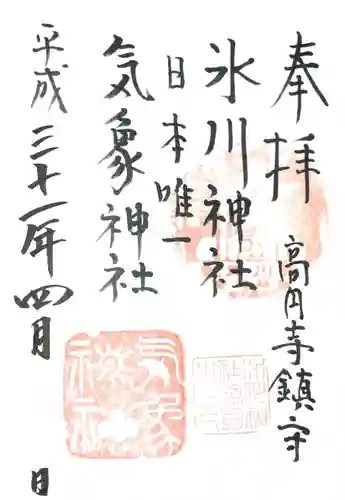 奉拝
高円寺鎮守
氷川神社
日本唯一
気象神社
平成三十一年四月
日